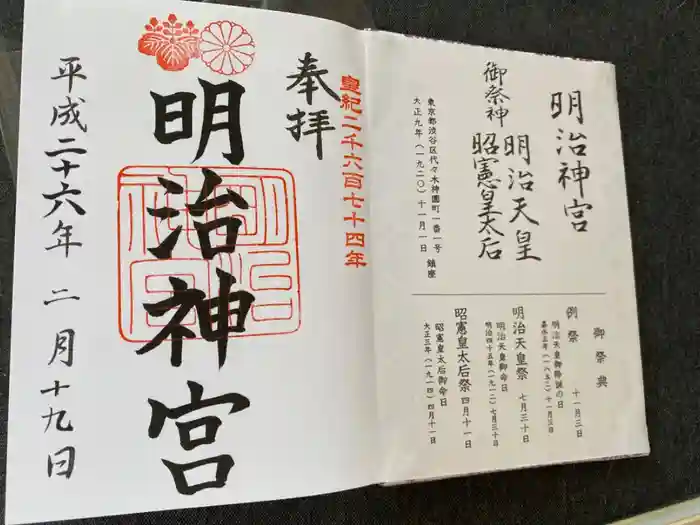 明治神宮
御祭神
明治天皇
昭憲皇太后
東京都渋谷区代々木神園町一番一号
大正九年(一九二〇)十一月一日 鎮座
御祭典
例祭 十一月三日
明治天皇御降誕の日
嘉永五年(一八五二)十一月三日
明治天皇祭 七月三十日
明治天皇御命日
明治四十五年(一九一二)七月三十日
昭憲皇太后祭 四月十一日
昭憲皇太后御命日
大正三年(一九一四)四月十一日
皇紀二千六百七十四年
奉拝
明治神宮
平成二十六年 二月十九日